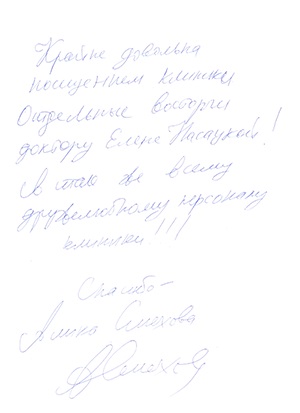 Крайне довольна
посещением клиники
Отдельные восторги
доктору Елене!
А так же всему
дружелюбному персоналу
клиники!!!
Спасибо -
Алина Смехова